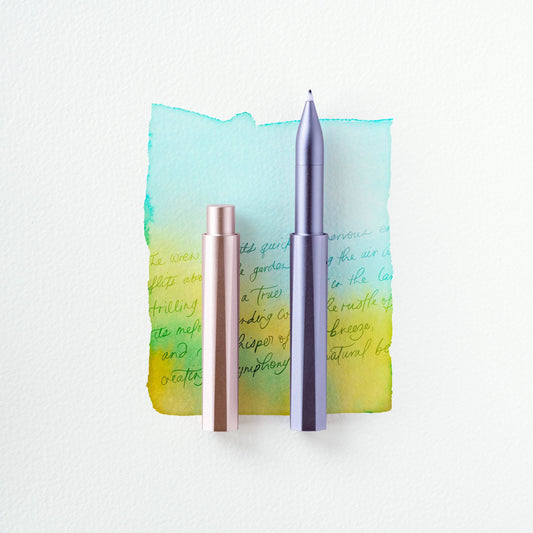 The wren its quick nervous en
flits abou e garden ng the air w
trilling a true in the lan
its melo nding co he rustle of
and r hisper of breeze,
creating ymphony natural be